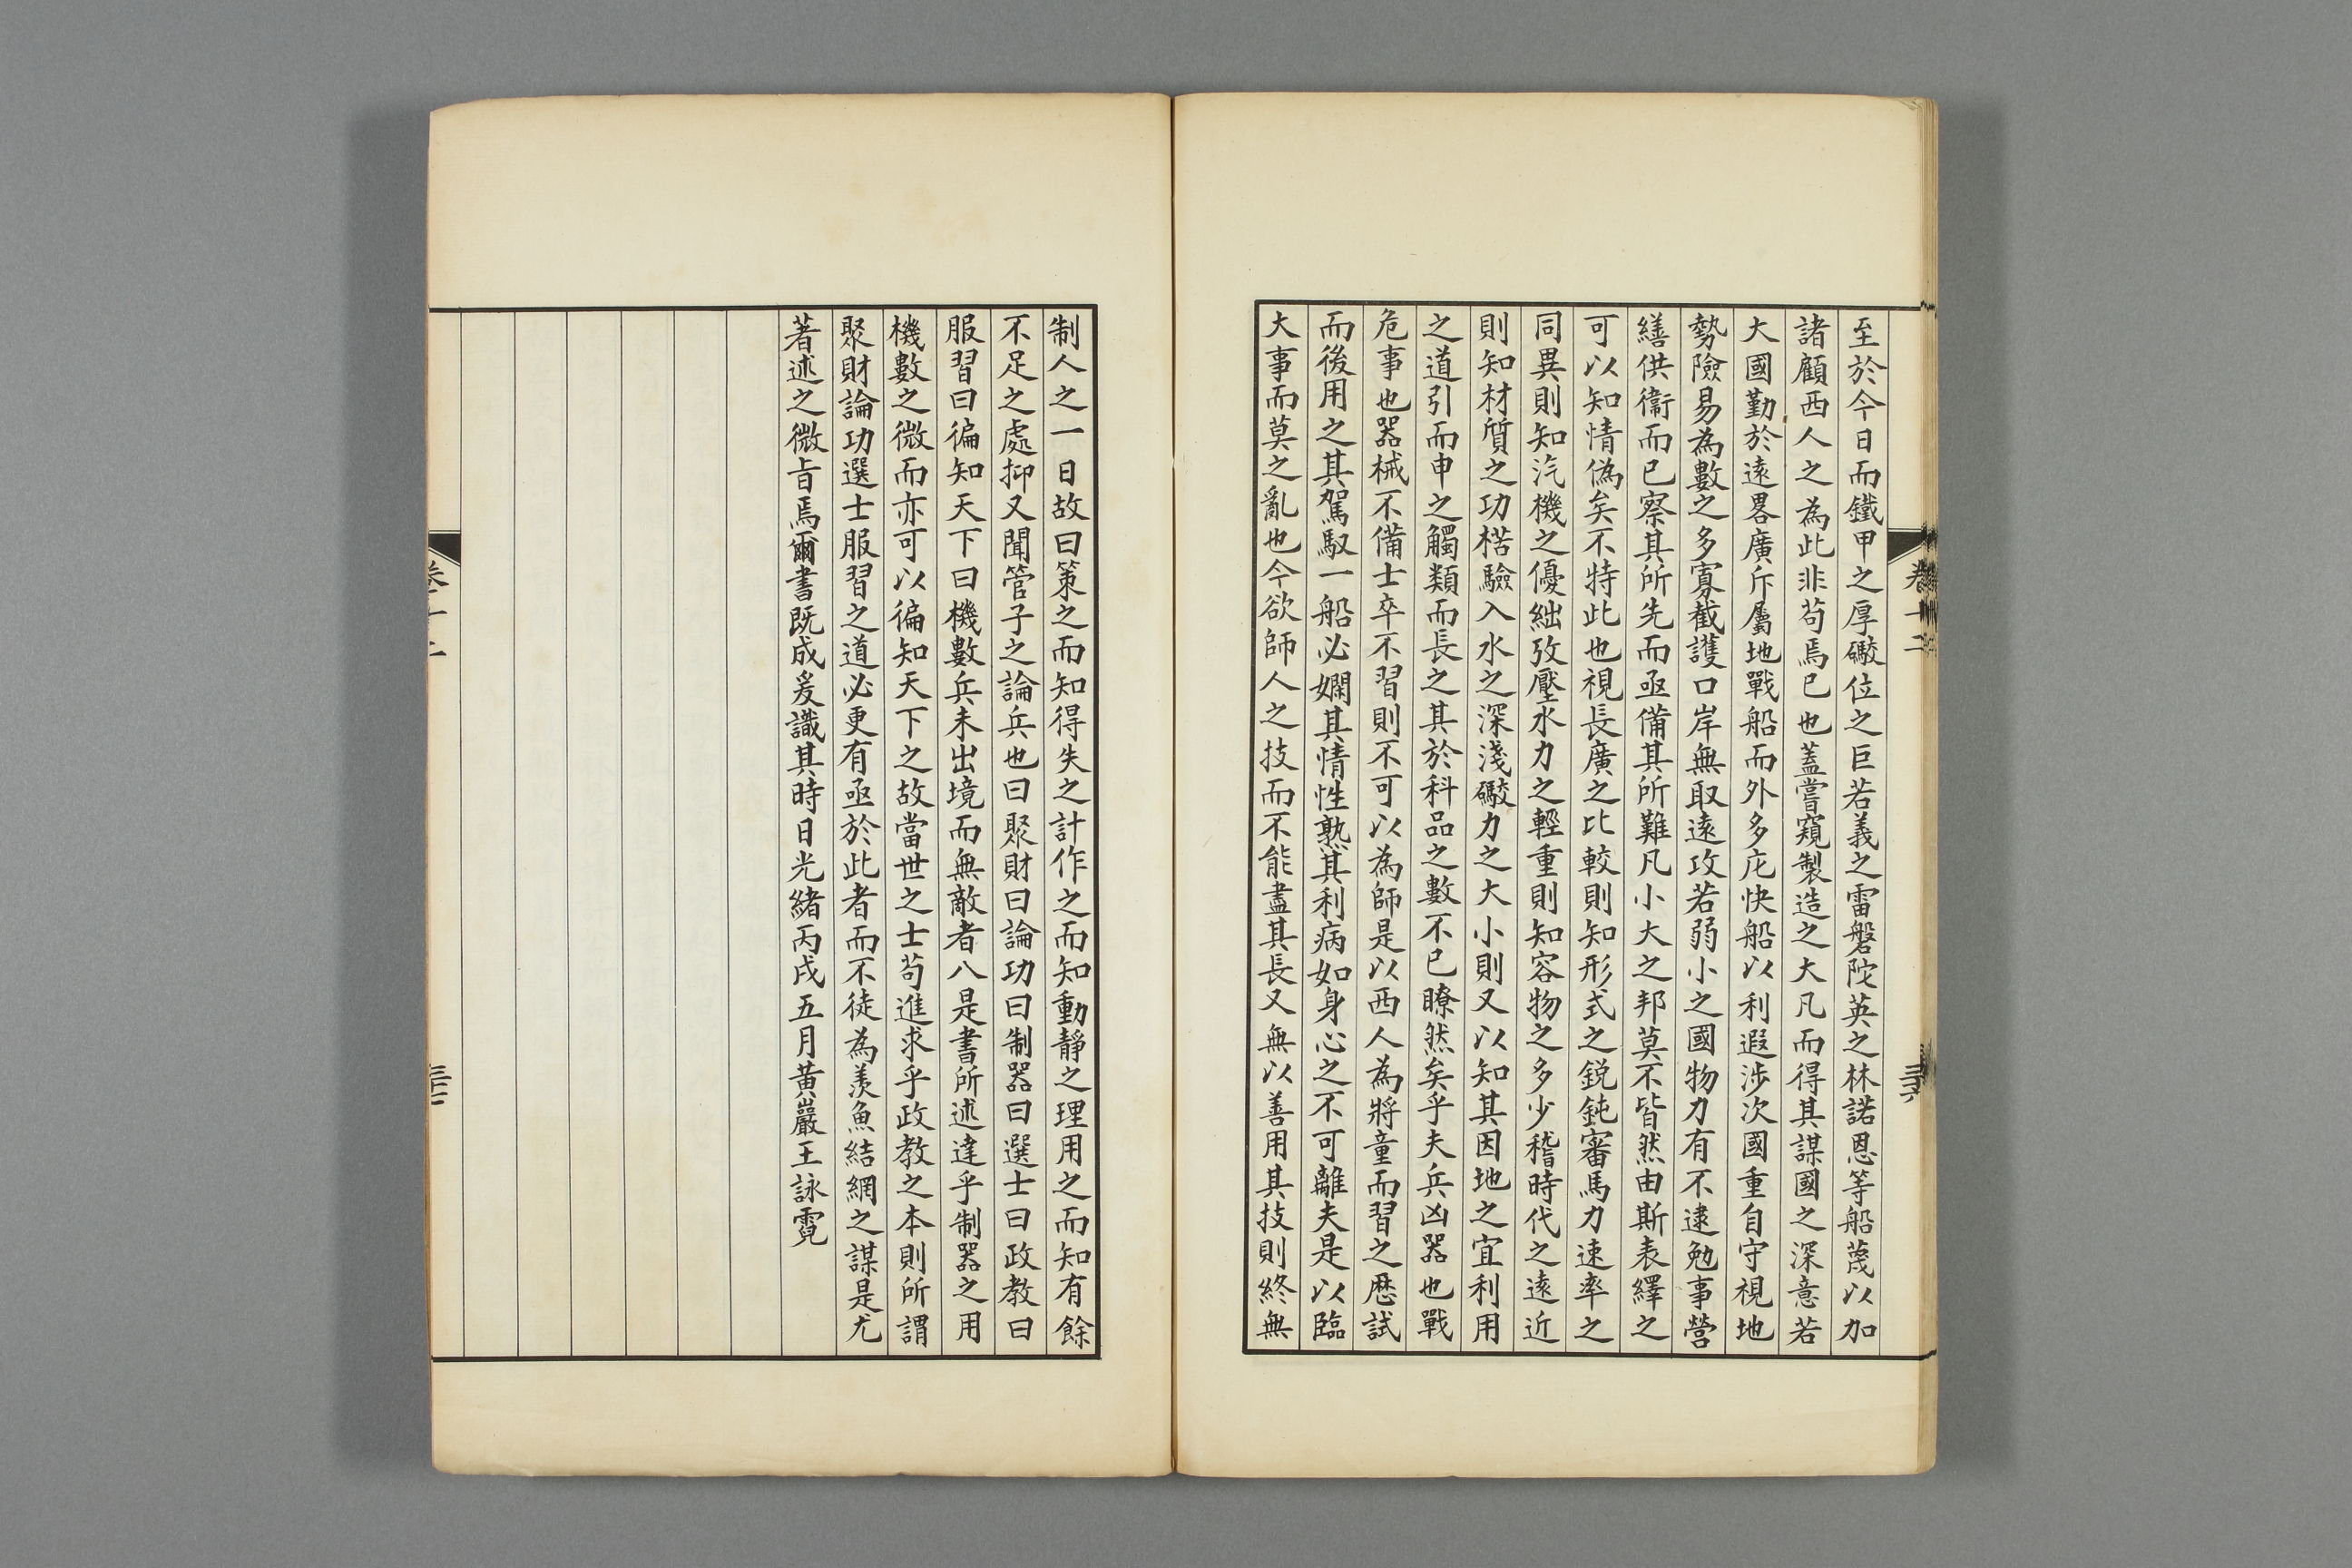 至於今日而鐵甲之厚礮位之巨若義之雷磐陀英之林諾恩等船蔑以加
諸顧西人之為此非苟焉已也蓋嘗窺製造之大凡而得其謀國之深意若
大國勤於遠畧廣斥屬地戰船而外多庀快船以利遐涉次國重自守視地
勢險易為數之多寡截護口岸無取遠攻若弱小之國物力有不逮勉事營
繕供衞而已察其所先而亟備其所難凡小大之邦莫不皆然由斯表繹之
可以知情偽矣不特此也視長廣之比較則知形式之銳鈍審馬力速率之
同異則知汽機之優絀攷壓水力之輕重則知容物之多少稽時代之遠近
則知材質之功楛驗入水之深淺礮力之大小則又以知其因地之宜利用
之道引而申之觸類而長之其於科品之數不已瞭然矣乎夫兵凶器也戰
危事也器械不備士卒不習則不可以為師是以西人為將童而習之歷試
而後用之其駕馭一船必嫻其情性熟其利病如身心之不可離夫是以臨
大事而莫之亂也今欲師人之技而不能盡其長又無以善用其技則終無
卷十二
三十六
制人之一日故曰策之而知得失之計作之而知動靜之理用之而知有餘
不足之處抑又聞管子之論兵也曰聚財曰論功曰制器曰選士曰政教曰
服習曰徧知天下曰機數兵未出境而無敵者八是書所述達乎制器之用
機數之微而亦可以徧知天下之故當世之士苟進求乎政教之本則所謂
聚財論功選士服習之道必更有亟於此者而不徒為羨魚結網之謀是尤
著述之微旨焉爾書既成爰識其時日光緒丙戌五月黃巖王詠霓
卷十二
三十七